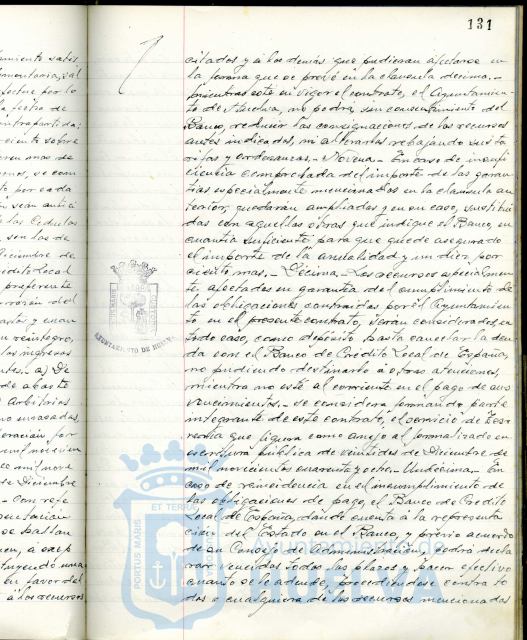 131
citados y a los demás que pudieran afectarse en
la forma que se prevé en la clausula décima.-
Mientras esté en vigor el contrato, el Ayuntamien-
to de Huelva, no podrá, sin consentimiento del
Banco, reducir las consignaciones de los recursos
antes indicados, ni alterarlos rebajando sus ta
rifas y ordenanzas.- Novena.- En caso de insufi
ciencia comprobada del importe de las garan-
tias especialmente mencionadas en la clausula an
terior, quedaran ampliadas y en su caso, sustitui
das con aquellas otras que indique el Banco, en
cuantia suficiente para que quede asegurado
el importe de la anualidad y un diez por
ciento mas.- Décima.- Los recursos especialmen
te afectados en garantia del cumplimiento de
las obligaciones contraidas por el Ayuntamien-
to en el presente contrato, seran considerados, en
todo caso, como depósito hasta cancelar la deu
da con el Banco de Crédito Local de España,
no pudiendo destinarlo a otras atenciones,
mientra no esté al corriente en el pago de sus
vencimientos.- se considera formando parte
integrante de este contrato, el servicio de Teso
reria que figura como anejo al formalizado en
escritura pública de veintidos de Diciembre de
mil novecientos cuarenta y ocho.- Undécima.- En
caso de reincidencia en el incumplimiento de
las obligaciones de pago, el Banco de Credito
Local de España, dando cuenta a la representa
ción del Estado en el Banco, y previo acuerdo
de su Consejo de Administracion, podrá decla
rar vencidos todos los plazos y hacer efectivo
cuanto se le adeude, procediendose contra to
dos o cualquiera de los recursos mencionados
AYUNTAMIENTO DE HUELVA
PORTUS MARIS ET TERRAE
Ayuntamiento de